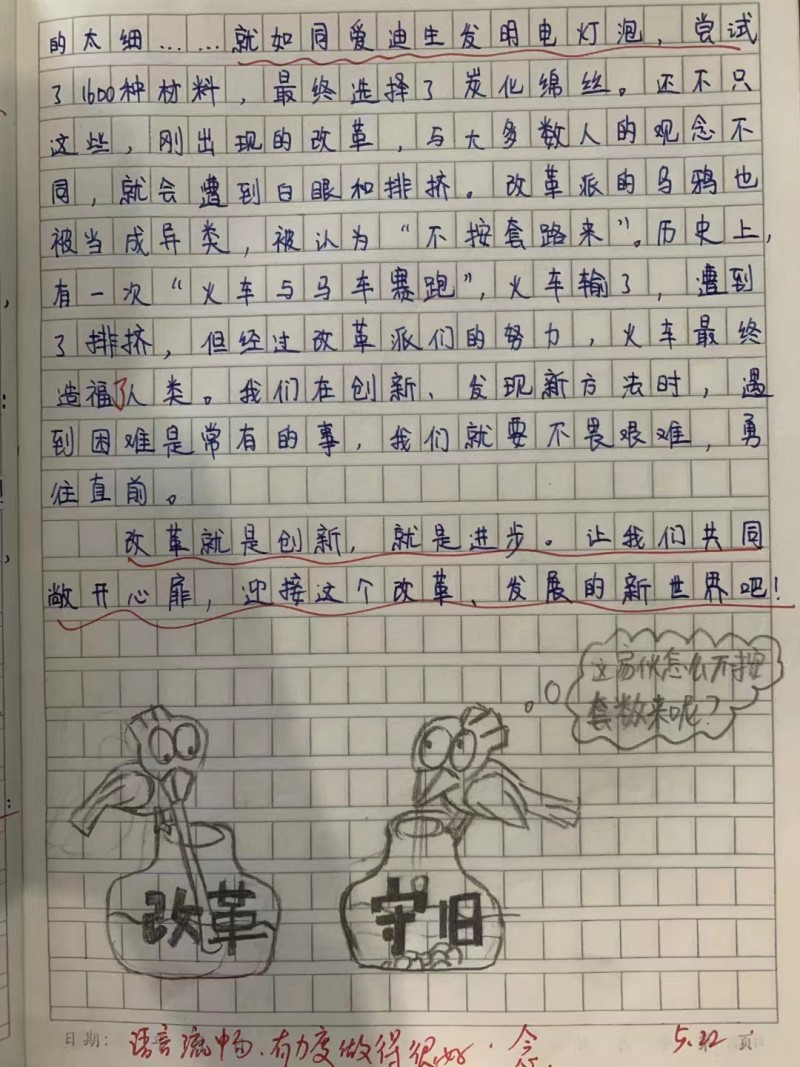 的太细……就如同爱迪生发明电灯泡，尝试
了1600种材料，最终选择了炭化绵丝。还不只
这些，刚出现的改革，与大多数人的观念不
同，就会遭到白眼和排挤。改革派的乌鸦也
被当成异类，被认为“不按套路来”。历史上，
有一次“火车与马车赛跑”，火车输了，遭到
了排挤，但经过改革派们的努力，火车最终
造福了人类。我们在创新、发现新方法时，遇
到困难是常有的事，我们就要不畏艰难，勇
往直前。
改革就是创新，就是进步。让我们共同
敞开心扉，迎接这个改革、发展的新世界吧！
这家伙怎么不按
套数来呢？
改革
守旧
日期：
语言流畅．有力度做得很好．
5.22
页